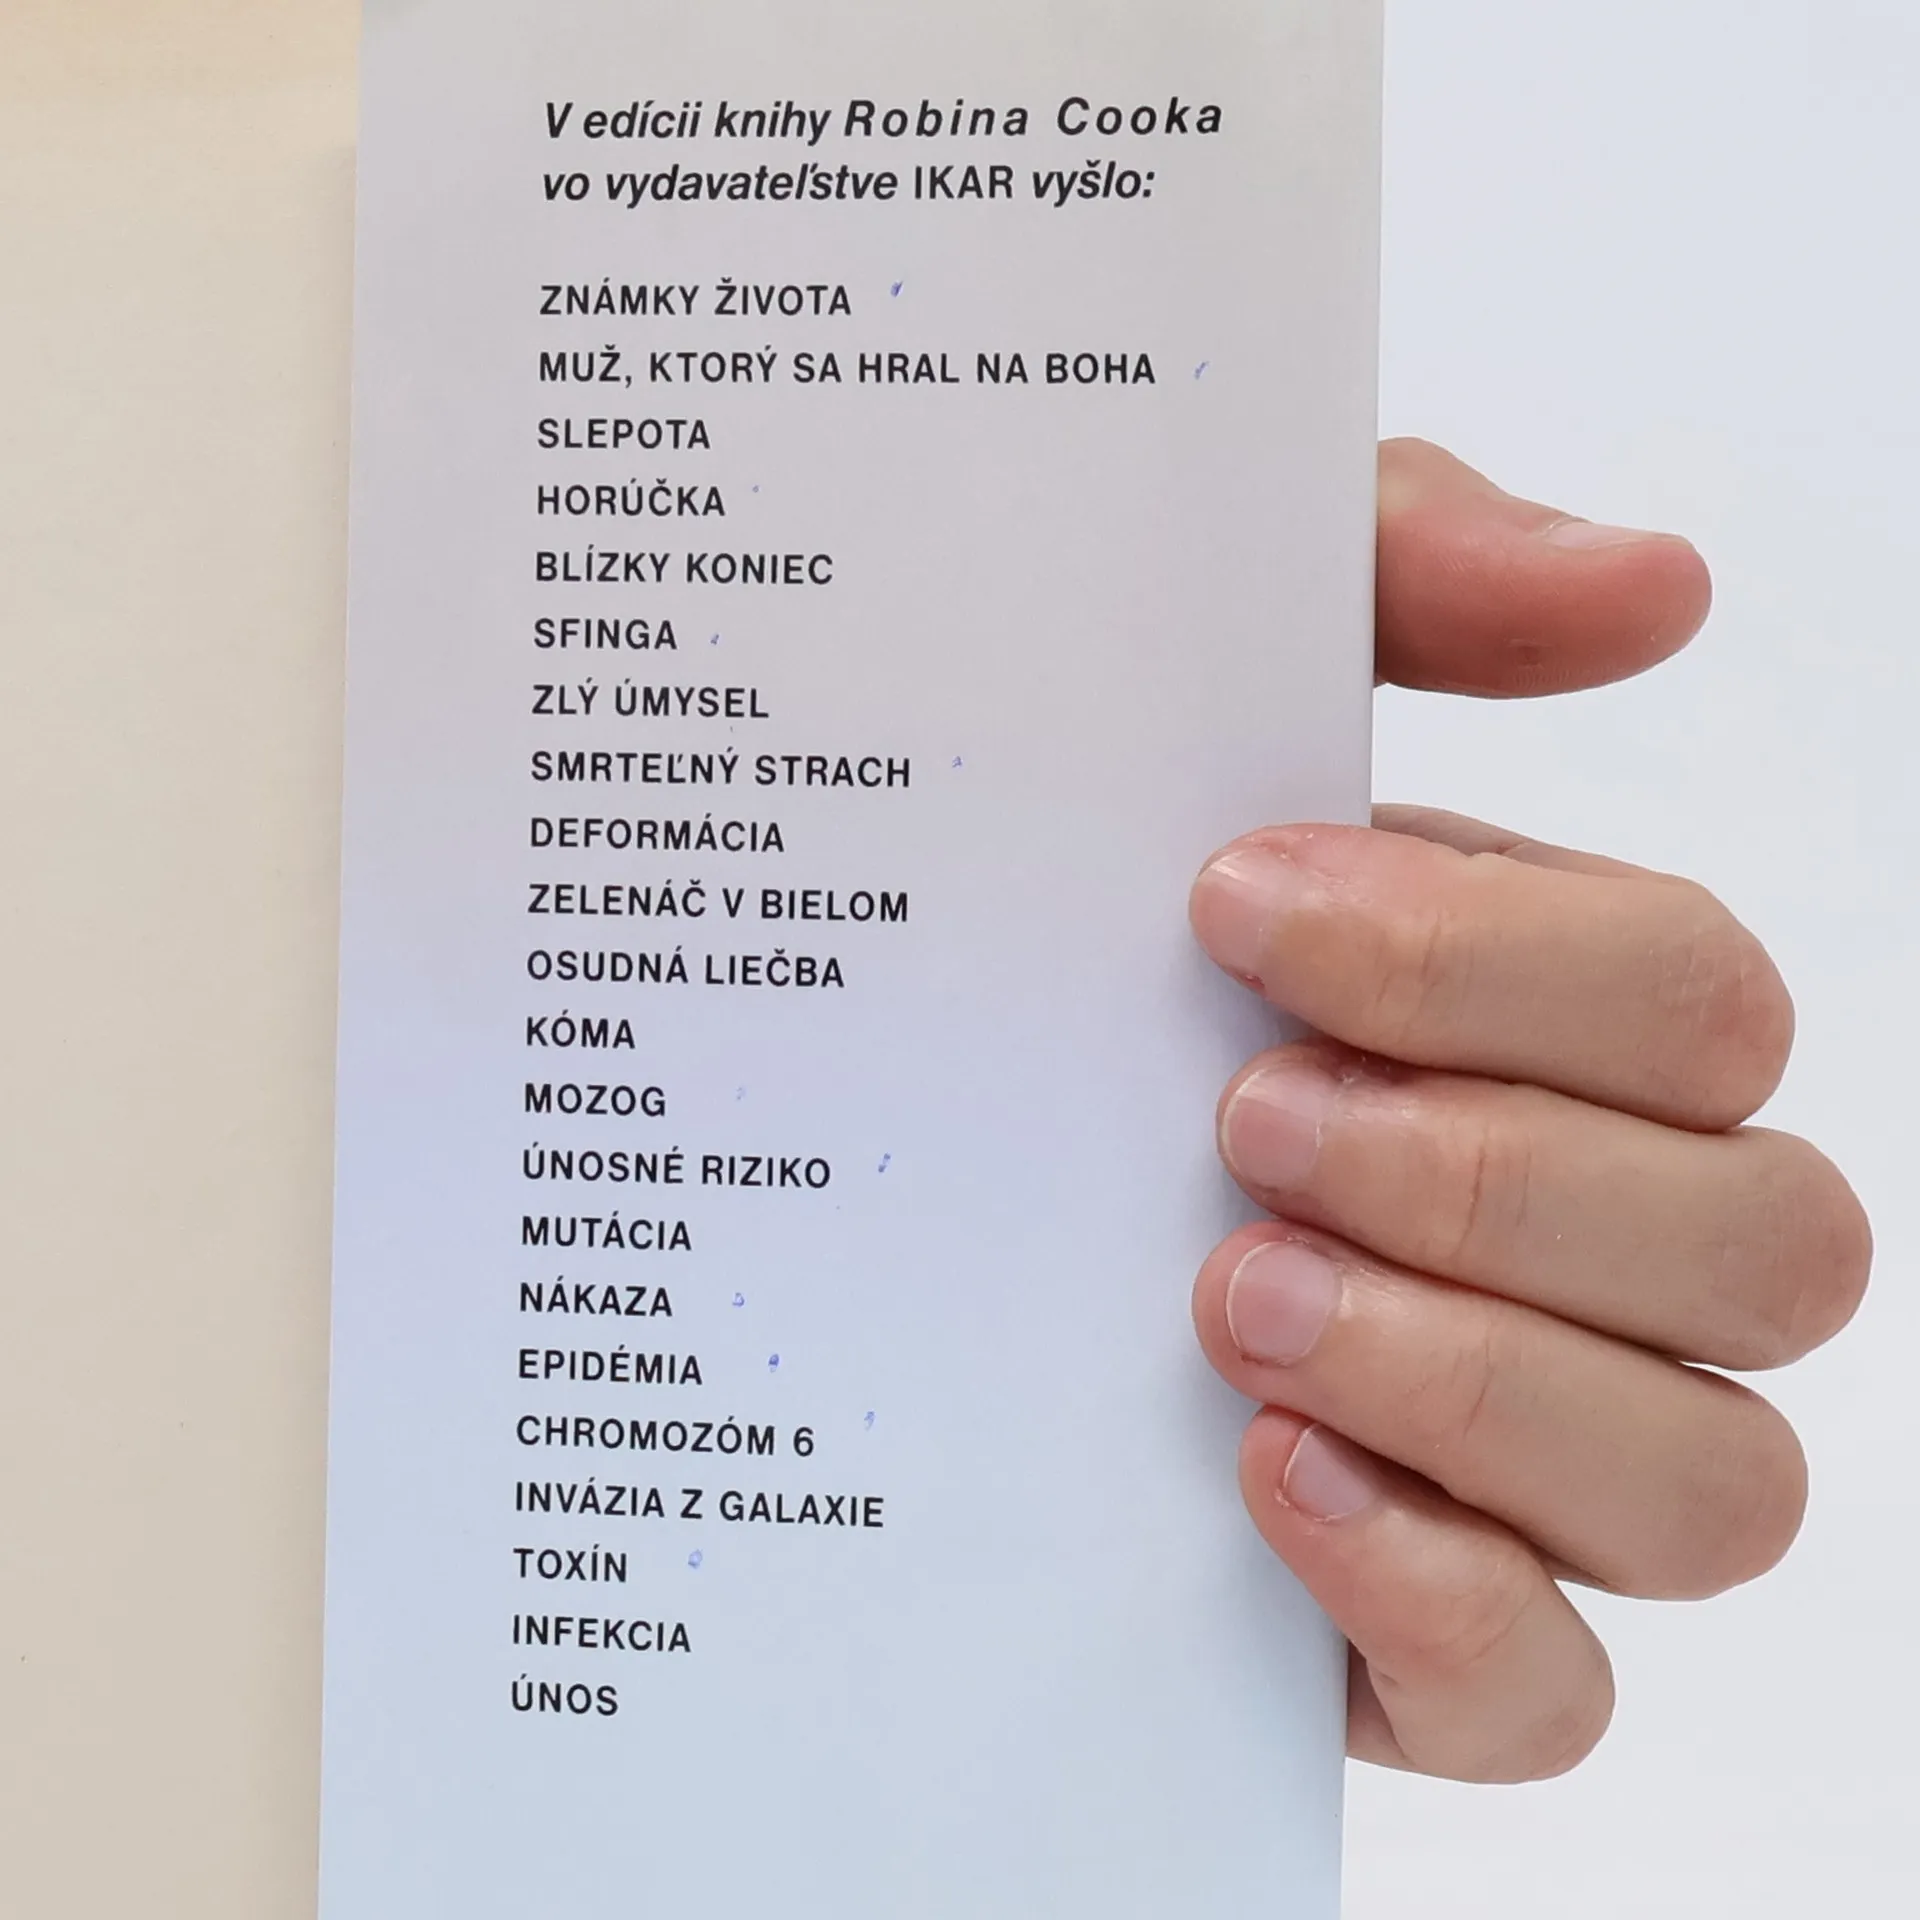 V edícii knihy Robina Cooka
vo vydavateľstve IKAR vyšlo:
ZNÁMKY ŽIVOTA
MUŽ, KTORÝ SA HRAL NA BOHA
SLEPOTA
HORÚČKA
BLÍZKY KONIEC
SFINGA
ZLÝ ÚMYSEL
SMRTEĽNÝ STRACH
DEFORMÁCIA
ZELENÁČ V BIELOM
OSUDNÁ LIEČBA
KÓMA
MOZOG
ÚNOSNÉ RIZIKO
MUTÁCIA
NÁKAZA
EPIDÉMIA
CHROMOZÓM 6
INVÁZIA Z GALAXIE
TOXÍN
INFEKCIA
ÚNOS